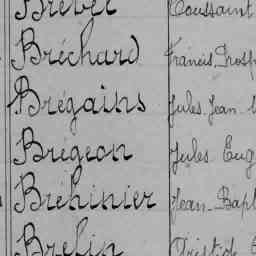 Brevet Toussaint
Bréchard Francis Prosp
Brégains Jules Jean
Brégeon Jules Eug
Bréhinier Jean-Bapt
Brelin Aristide